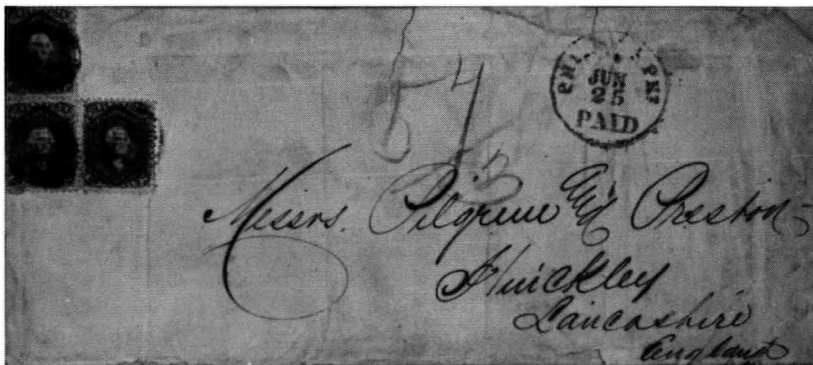 PHIL PKT
JUN
25
PAID
54
3
Messrs. Pilgrim and Preston
Hinckley
Lancashire
England